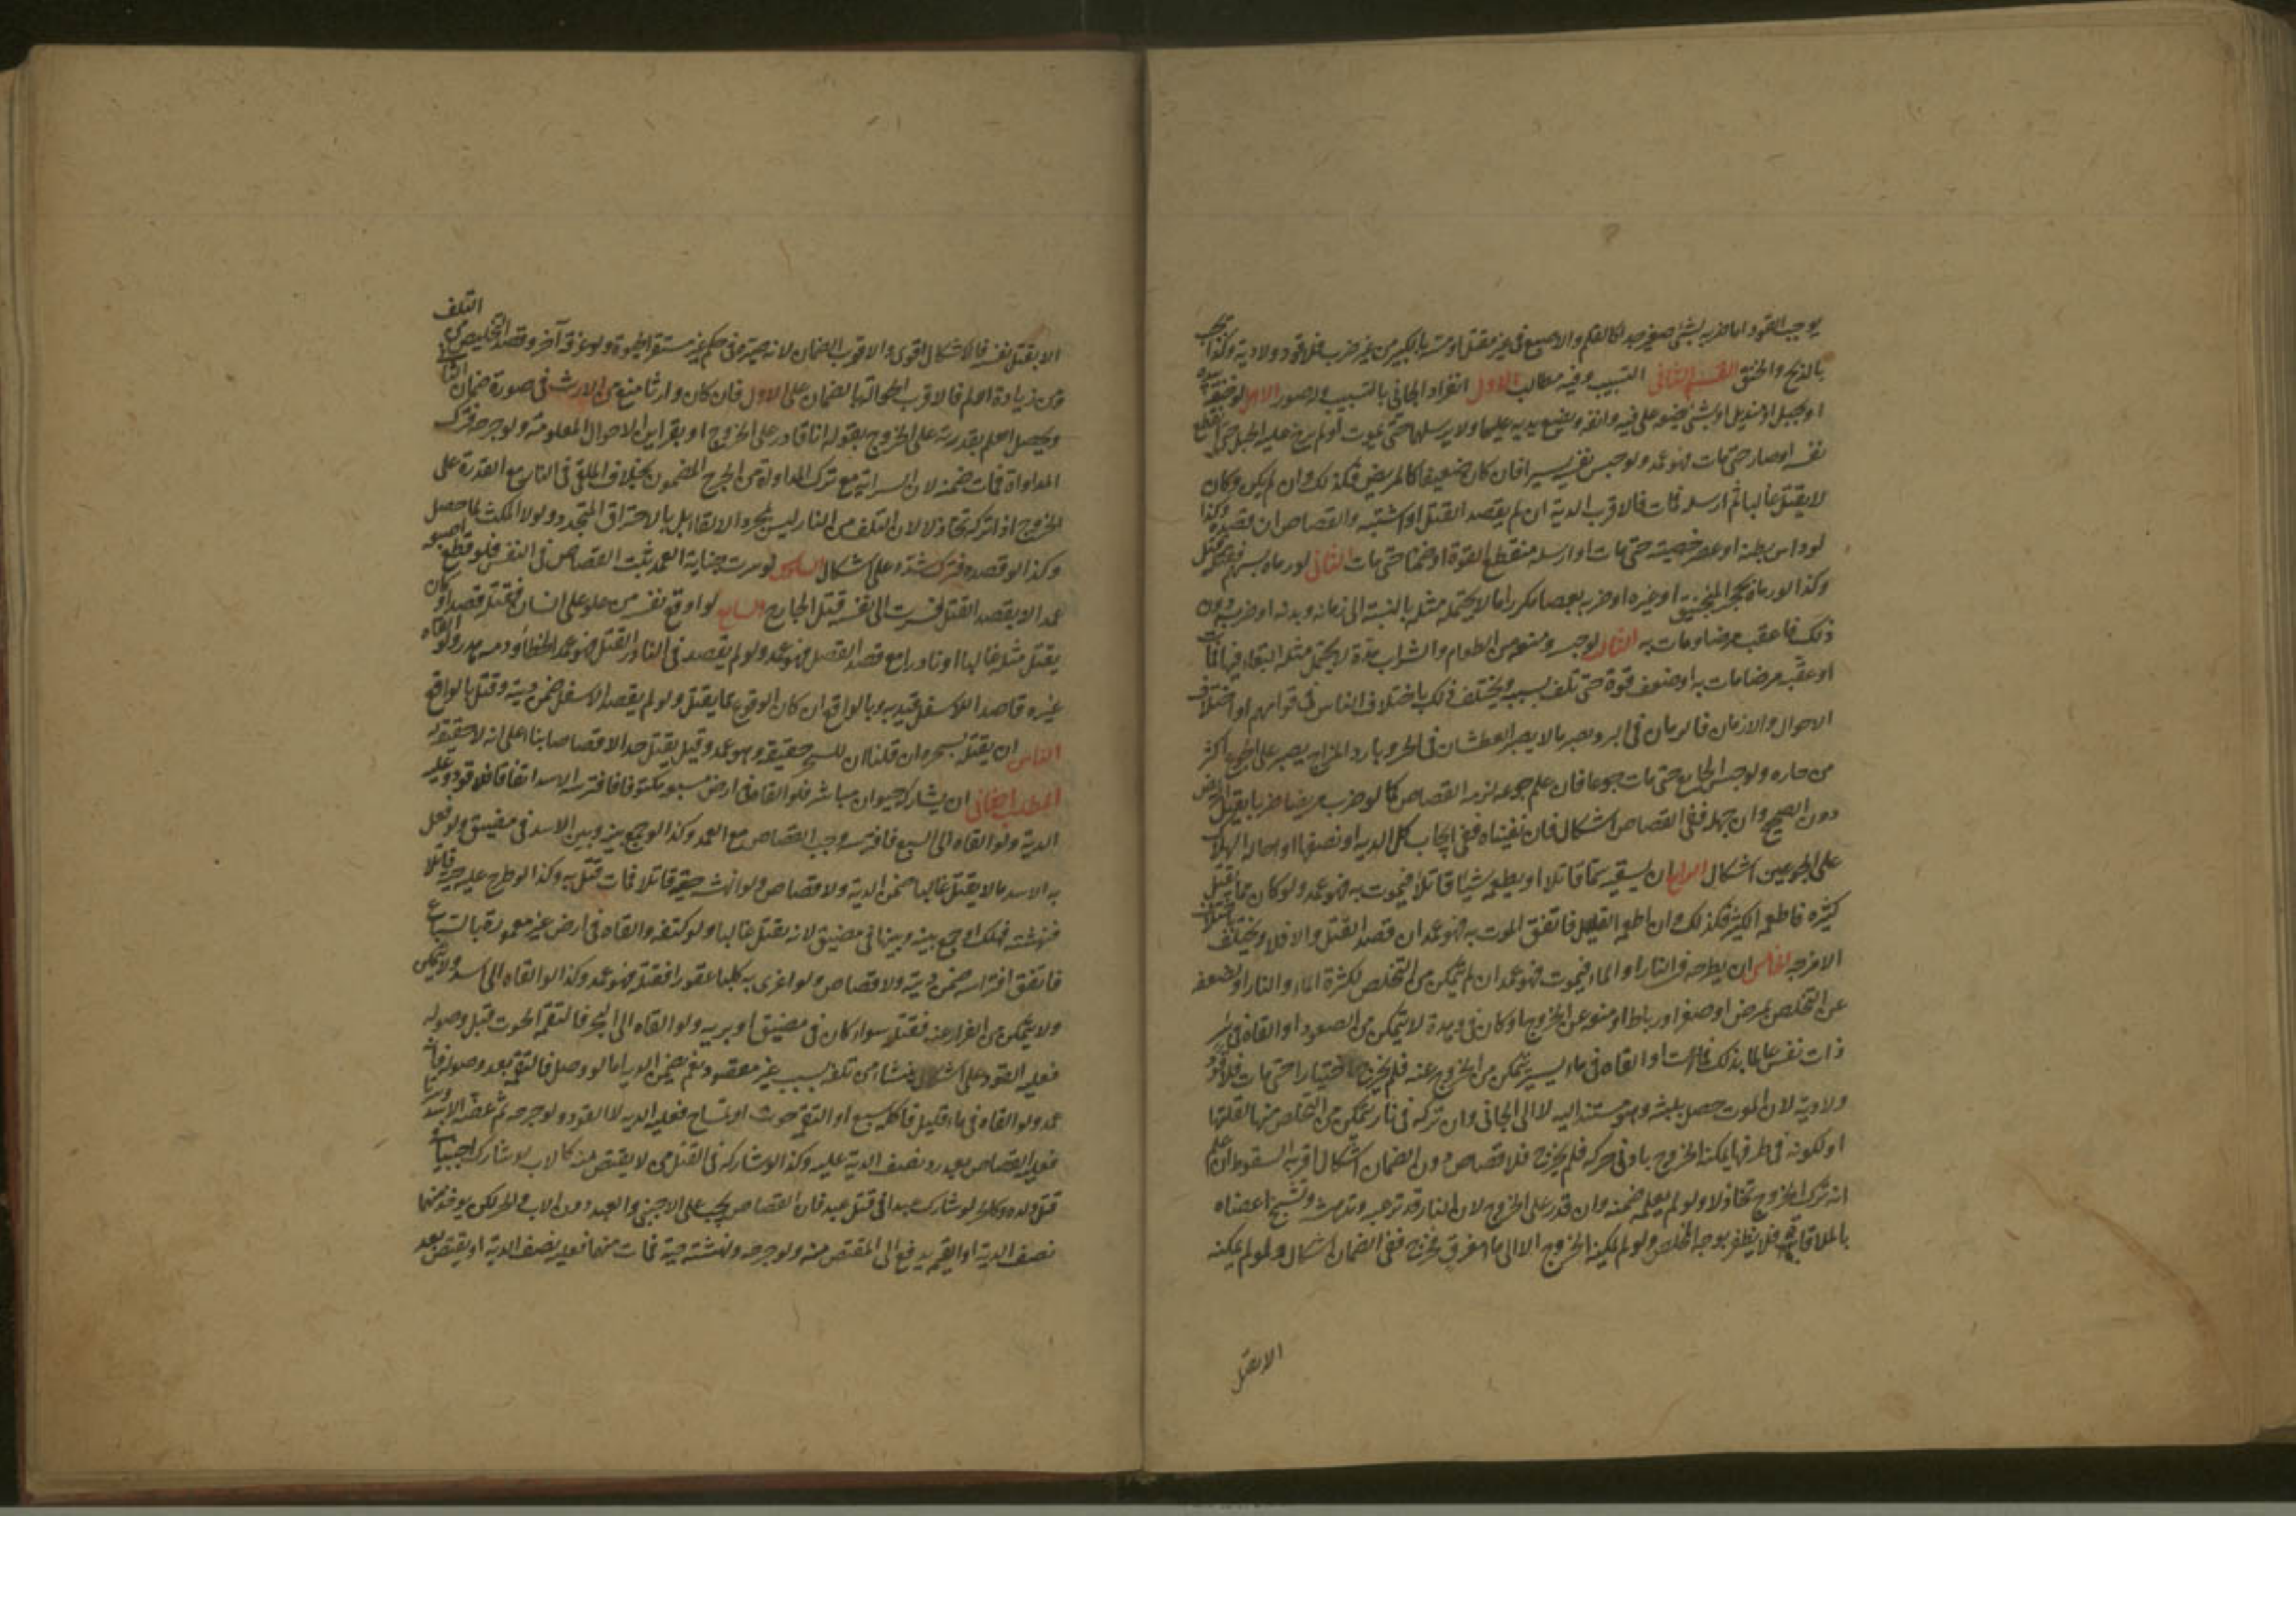 يوجب القود اما ضربه بشئ صغير جدا كالقلم والاصبع فى غير مقتل او مسه بالكبير من غير ضرب فلا قود ولا دية وكذا يجب
بالذبح والخنق القسم الثانى التسبيب وفيه مطالب الاول انفراد الجانى بالتسبيب وله صور الاول لو خنقه بيده
او بحبل او منديل او بشئ يضعه على فيه وانفه ويضع يديه عليهما ولا يرسلهما حتى يموت او لم يرخ عليه الحبل حتى انقطع
نفسه او صار حتى مات فهو عمد ولو حبس نفسه يسيرا فان كان ضعيفا كالمريض فكذلك وان لم يكن وكان
لا يقتل غالبا ثم ارسله فمات فالاقرب الدية ان لم يقصد القتل او اشتبه والقصاص ان قصده وكذا
لو داس بطنه او عصر خصيته حتى مات او ارسله منقطع القوة او ضمنا حتى مات الثانى لو رماه بسهم فقتله قتل
وكذا لو رماه بحجر المنجنيق او غيره او ضربه بعصا مكررا ما لا يحتمله مثله بالنسبة الى زمانه وبدنه او ضربه دون
ذلك فاعقب مرضا ومات به الثالث لو حبسه ومنعه من الطعام والشراب مدة لا يحتمل مثله البقاء فيها فمات
او عقبه مرضا مات به او ضعف قوة حتى تلف بسببه ويختلف ذلك باختلاف الناس فى قواهم او اختلاف
الاحوال والازمان فالريان فى البرد يصبر ما لا يصبر العطشان فى الحر وبارد المزاج يصبر على الجوع اكثر
من حاره ولو حبس الجايع حتى مات جوعا فان علم جوعه لزمه القصاص كما لو ضرب مريضا ضربا يقتل المريض
دون الصحيح وان جهله ففى القصاص اشكال فان نفيناه ففى ايجاب كل الدية او نصفها او احالة الهلاك
على الجوعين اشكال الرابع ان يسقيه سما قاتلا او يطعمه شيئا قاتلا فيموت به فهو عمد ولو كان مما يقتل
كثيره فاطعمه الكثير فكذلك وان اطعمه القليل فاتفق الموت به فهو عمد ان قصد القتل والا فلا ويختلف باختلاف
الامزجة الخامس ان يطرحه فى النار او الماء فيموت فهو عمد ان لم يتمكن من التخلص لكثرة الماء والنار او لضعفه
عن التخلص لمرض او صغر او رباط او منعه عن الخروج او كان فى وهدة لا يتمكن من الصعود او القاه فى بئر
ذات نفس عالما بذلك فمات او القاه فى ماء يسير يتمكن من الخروج عنه فلم يخرج اختيارا حتى مات فلا قود
ولا دية لان الموت حصل بلبثه وهو مستند اليه لا الى الجانى وان تركه فى نار يتمكن من التخلص منها لقلتها
او لكونه فى طرفها يمكنه الخروج بادنى حركة فلم يخرج فلا قصاص دون الضمان اشكال اقربه السقوط ان علم
انه ترك الخروج تخاذلا ولو لم يعلم ضمنه وان قدر على الخروج لان النار قد ترعبه وتدهشه وتشنج اعضاه
بالملاقاة فلا يظفر بوجه المخلص ولو لم يمكنه الخروج الا الى ماء مغرق فخرج ففى الضمان اشكال ولو لم يمكنه
الا بقتل
التلف
الا بقتل نفسه فالاشكال اقوى والاقرب الضمان لانه صيره فى حكم غير مستقر الحيوة ولو غرقه آخر وقصد التخليص من
من زيادة الم فالاقرب الحوالة بالضمان على الاول فان كان وارثا منع من الارث فى صورة ضمان الثانى
ويحصل العلم بقدرته على الخروج بقوله انا قادر على الخروج او بقراين الاحوال المعلومة ولو جرحه فترك
المداواة فمات ضمنه لان السراية مع ترك المداواة من الجرح المضمون بخلاف الملقى فى النار مع القدرة على
الخروج اذا تركه تخاذلا لان التلف من النار ليس بمجرد الالقاء بل بالاحتراق المتجدد ولولا المكث لما حصل
وكذا لو فصده فترك شده على اشكال السادس لو سرت جناية العمد ثبت القصاص فى النفس فلو قطع اصبعه
عمدا لا بقصد القتل فسرت الى نفسه قتل الجارح السابع لو اوقع نفسه من علو على انسان فقتله قصدا وكان
يقتل مثله غالبا او نادرا مع قصد القتل فهو عمد ولو لم يقصد فى النادر القتل فهو عمد الخطأ ودمه هدر ولو القاه
غيره قاصدا للاسفل قيد به وبالواقع ان كان الوقوع مما يقتل ولو لم يقصد الاسفل ضمن ديته وقتل بالواقع
الثامن ان يقتله بسحره ان قلنا ان للسحر حقيقة وهو عمد وقيل يقتل حدا لا قصاصا بناء على انه لا حقيقة له
المطلب الثانى ان يشاركه حيوان مباشر فلو القاه فى ارض مسبعة مكتوفا فافترسه الاسد اتفاقا فلا قود وعليه
الدية ولو القاه الى السبع فافترسه وجب القصاص مع العمد وكذا لو جمع بينه وبين الاسد فى مضيق ولو فعل
به الاسد ما لا يقتل غالبا ضمن الدية ولا قصاص ولو انهشه حية قاتلا فمات قتل به وكذا لو طرح عليه حية قاتلا
فنهشته فهلك او جمع بينه وبينها فى مضيق لانه يقتل غالبا ولو كتفه والقاه فى ارض غير معهودة بالسباع
فاتفق افتراسه ضمن ديته ولا قصاص ولو اغرى به كلبا عقورا فقتله فهو عمد وكذا لو القاه الى اسد ولا يتمكن
ولا يتمكن من الفرار عنه فقتله سواء كان فى مضيق او برية ولو القاه الى البحر فالتقمه الحوت قبل وصوله
فعليه القود على اشكال ينشأ من تلفه بسبب غير مقصود نعم يضمن الدية اما لو وصل فالتقمه بعد وصوله فانه
عمد ولو القاه فى ماء قليل فاكله سبع او التقمه حوت او تمساح فعليه الدية لا القود ولو جرحه ثم عضه الاسد وسرتا
فعليه القصاص بعد رد نصف الدية عليه وكذا لو شاركه فى القتل من لا يقتص منه كالاب لو شارك اجنبيا فى
قتل ولده وكالحر لو شارك عبدا فى قتل عبد فان القصاص يجب على الاجنبى والعبد دون الاب والحر لكن يوخذ منهما
نصف الدية او القيمة يدفع الى المقتص منه ولو جرحه ونهشته حية فمات منهما فعليه نصف الدية او يقتص بعد